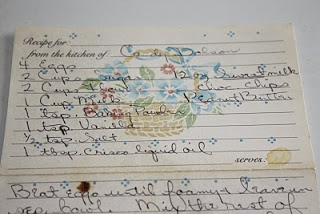 Recipe for
from the kitchen of Candy Dobson
4 Eggs
2 Cups Sugar 12 oz Sweet milk
2 Cups choc chips
1 Cup Milk Peanut Butter
1 tsp Baking Powder
1 tsp Vanilla
½ tsp Salt
1 tbsp. crisco liquid oil
serves:
Beat eggs until foamy & leave in
bowl. Mix the rest of